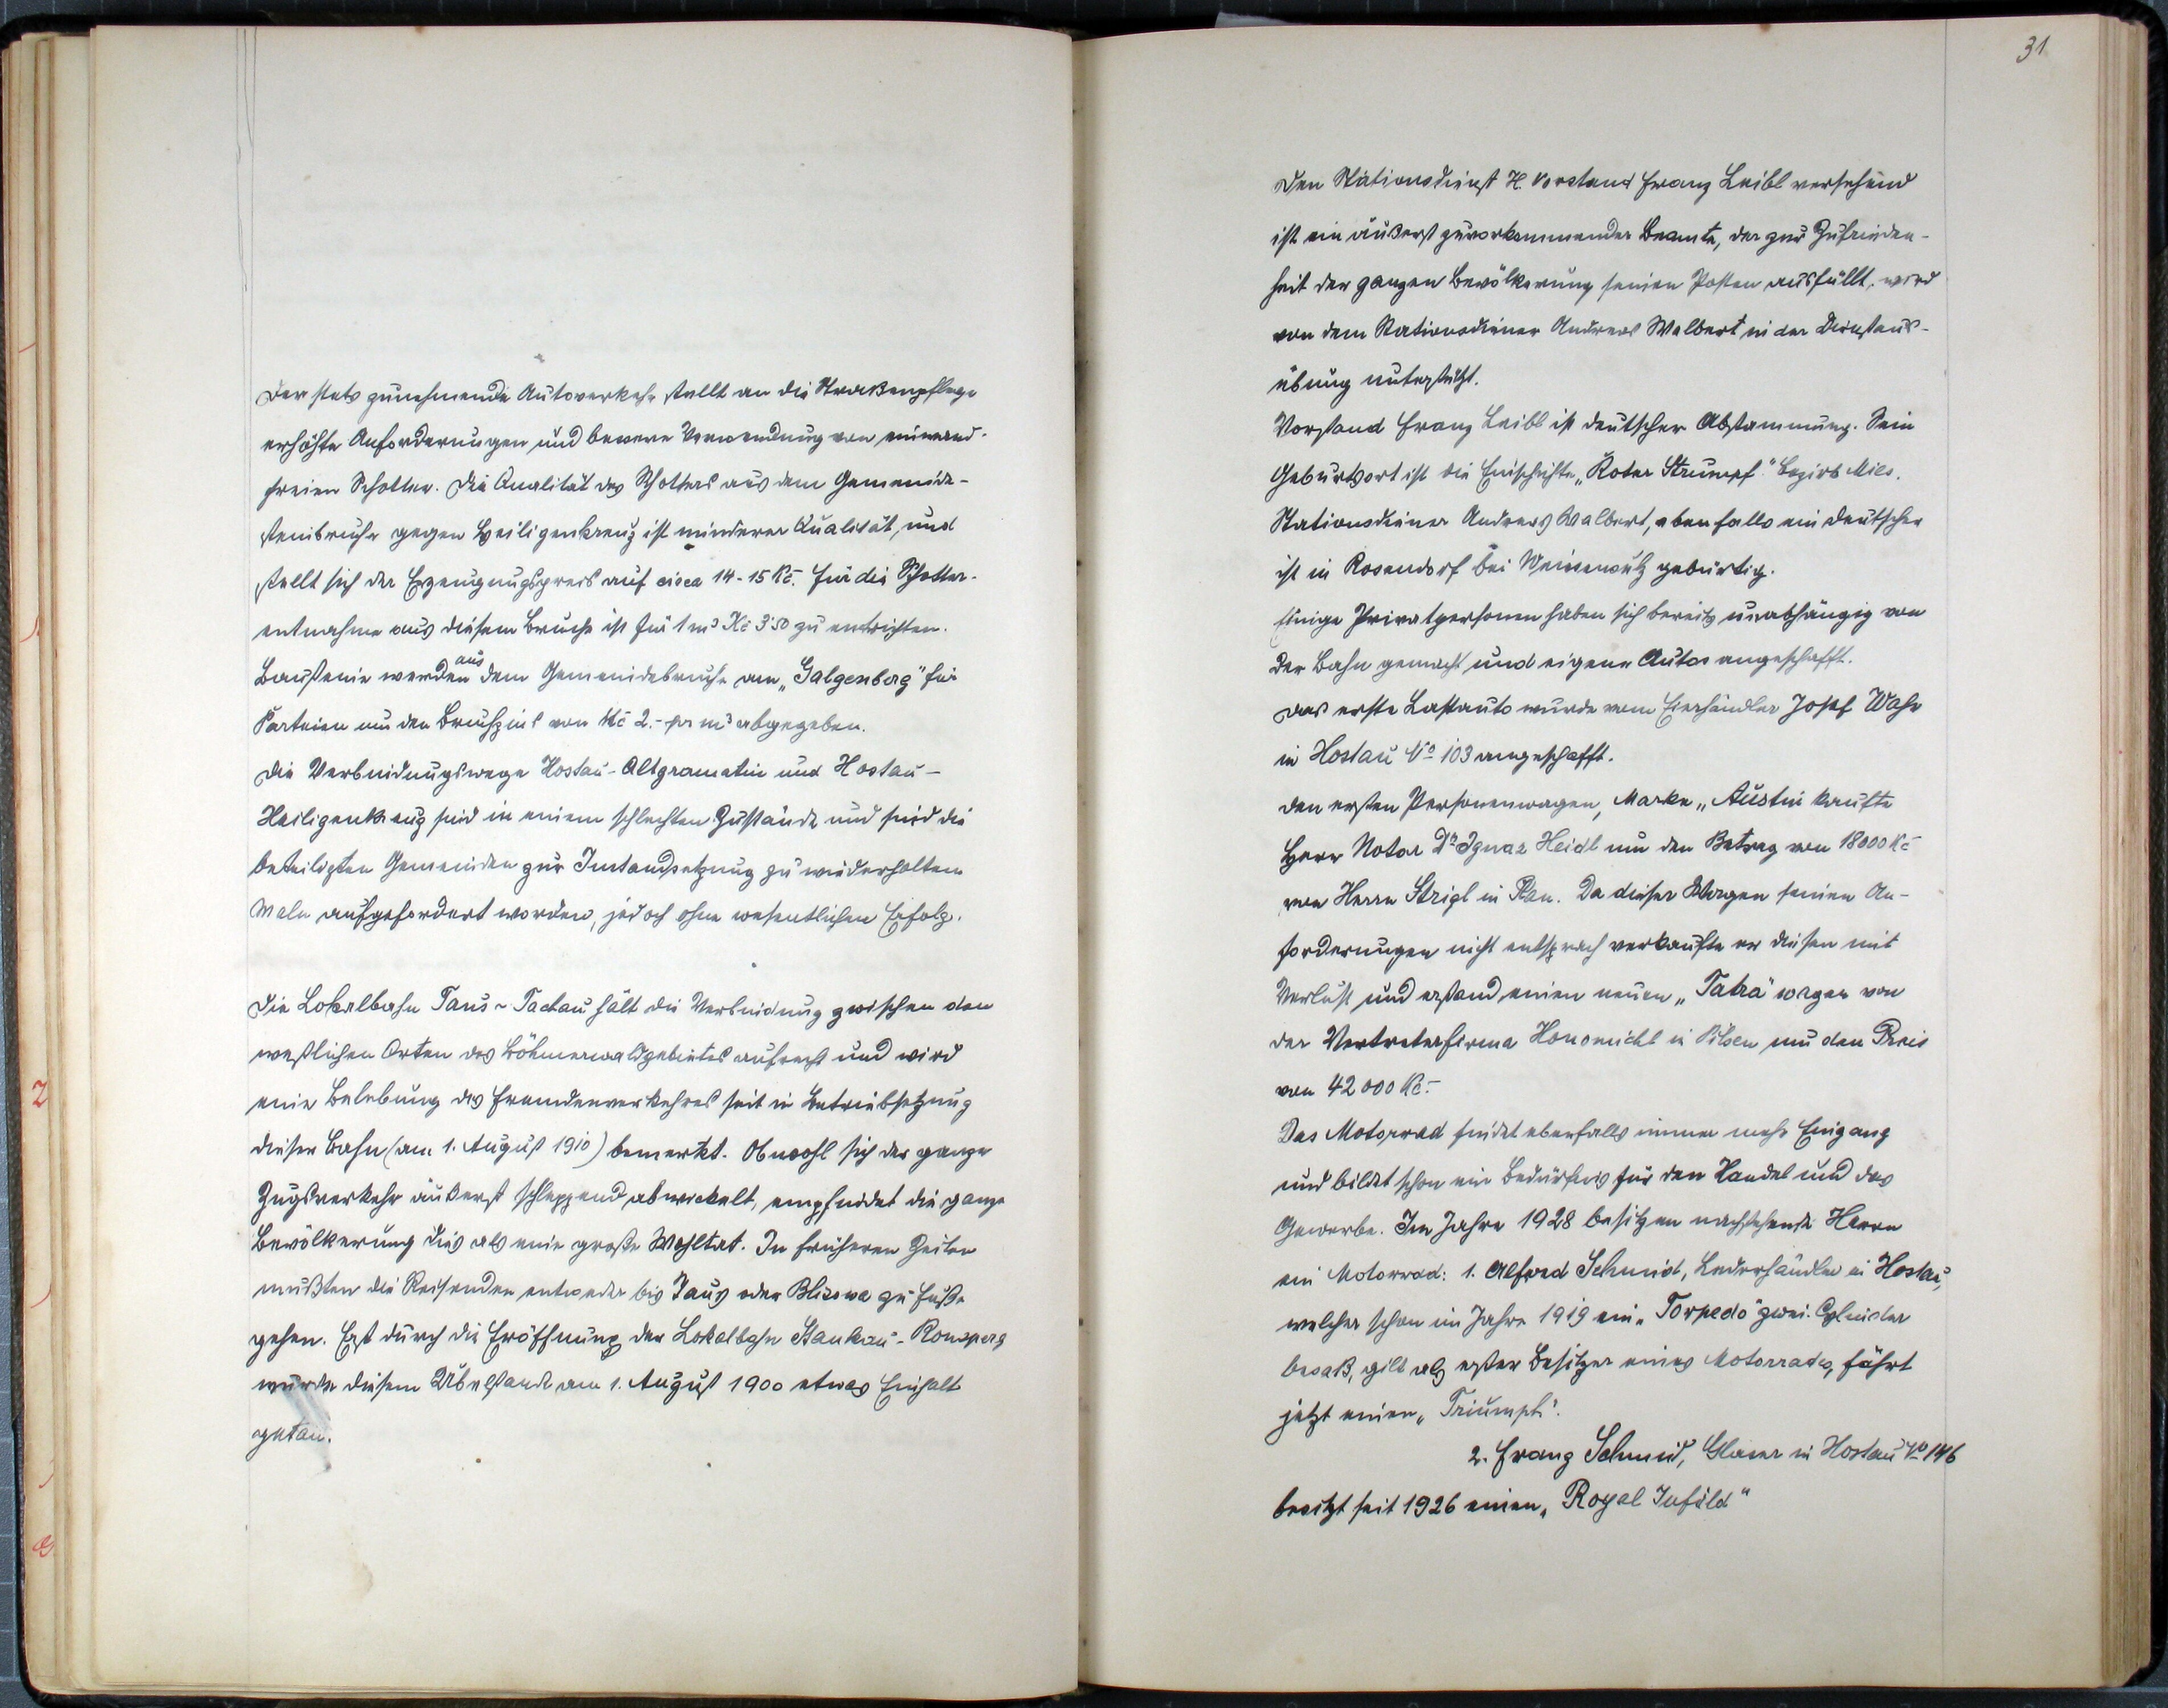 Der stets zunehmende Autoverkehr stellt an die Straßenpflege
erhöhte Anforderungen und bessere Verwendung von einwand-
freien Schotter. Die Qualität des Schotters aus dem Gemeinde-
steinbruche gegen Heiligenkreuz ist minderer Qualität, und
stellt sich der Erzeugungspreis auf circa 14-15 Kč. Für die Schotter-
entnahme aus diesem Bruche ist für 1 m³ Kč 3·50 zu entrichten.
Bausteine werden aus dem Gemeindebruche am „Galgenberg" für
Parteien um den Bruchzins von Kč 2.- pr m³ abgegeben.
Die Verbindungswege Hostau-Altgramatin und Hostau-
Heiligenkreuz sind in einem schlechten Zustande und sind die
beteiligten Gemeinden zur Instandsetzung zu wiederholten
Malen aufgefordert worden, jedoch ohne wesentlichen Erfolg.
Die Lokalbahn Taus-Tachau hält die Verbindung zwischen den
westlichen Orten des Böhmerwaldgebietes aufrecht und wird
eine Belebung des Fremdenverkehres seit in Betriebsetzung
dieser Bahn (am 1. August 1910) bemerkt. Obwohl sich der ganze
Zugsverkehr äußerst schleppend abwickelt, empfindet die ganze
Bevölkerung dies als eine große Wohltat. In früheren Zeiten
mußten die Reisenden entweder bis Taus oder Blisowa zu Fuße
gehen. Erst durch die Eröffnung der Lokalbahn Stankau-Ronsperg
wurde diesem Übelstande am 1. August 1900 etwas Einhalt
getan.
31
Den Stationsdienst H. Vorstand Franz Leibl versehend
ist ein äußerst zuvorkommender Beamte, der zur Zufrieden-
heit der ganzen Bevölkerung seinen Posten ausfüllt, wird
von dem Stationsdiener Andreas Walbert in der Dienstaus-
übung unterstützt.
Vorstand Franz Leibl ist deutscher Abstammung. Sein
Geburtsort ist die Einschichte „Roter Strumpf" Bezirk Mies.
Stationsdiener Andreas Walbert, ebenfalls ein Deutscher
ist in Rosendorf bei Weissensulz gebürtig.
Einige Privatpersonen haben sich bereits unabhängig von
der Bahn gemacht und eigene Autos angeschafft.
Das erste Lastauto wurde vom Eierhändler Josef Wahr
in Hostau No 103 angeschafft.
Den ersten Personenwagen, Marke „Austin kaufte
Herr Notar Dr Ignaz Heidl um den Betrag von 18000 Kč
von Herrn Strigl in Plan. Da dieser Wagen seinen An-
forderungen nicht entsprach verkaufte er diesen mit
Verlust und erstand einen neuen „Tatra" wagen von
der Vertreterfirma Honomichl in Pilsen um den Preis
von 42000 Kč.-
Das Motorrad findet ebenfalls immer mehr Eingang
und bildet schon ein Bedürfnis für den Handel und das
Gewerbe. Im Jahre 1928 besitzen nachstehende Herrn
ein Motorrad: 1. Alfred Schmid, Lederhändler in Hostau,
welcher schon im Jahre 1919 ein „Torpedo" zwei Cylinder
besaß, gilt als erster Besitzer eines Motorrades, fährt
jetzt einen „Triumph".
2. Franz Schmid, Glaser in Hostau No 146
besitzt seit 1926 einen „Royal Infield"